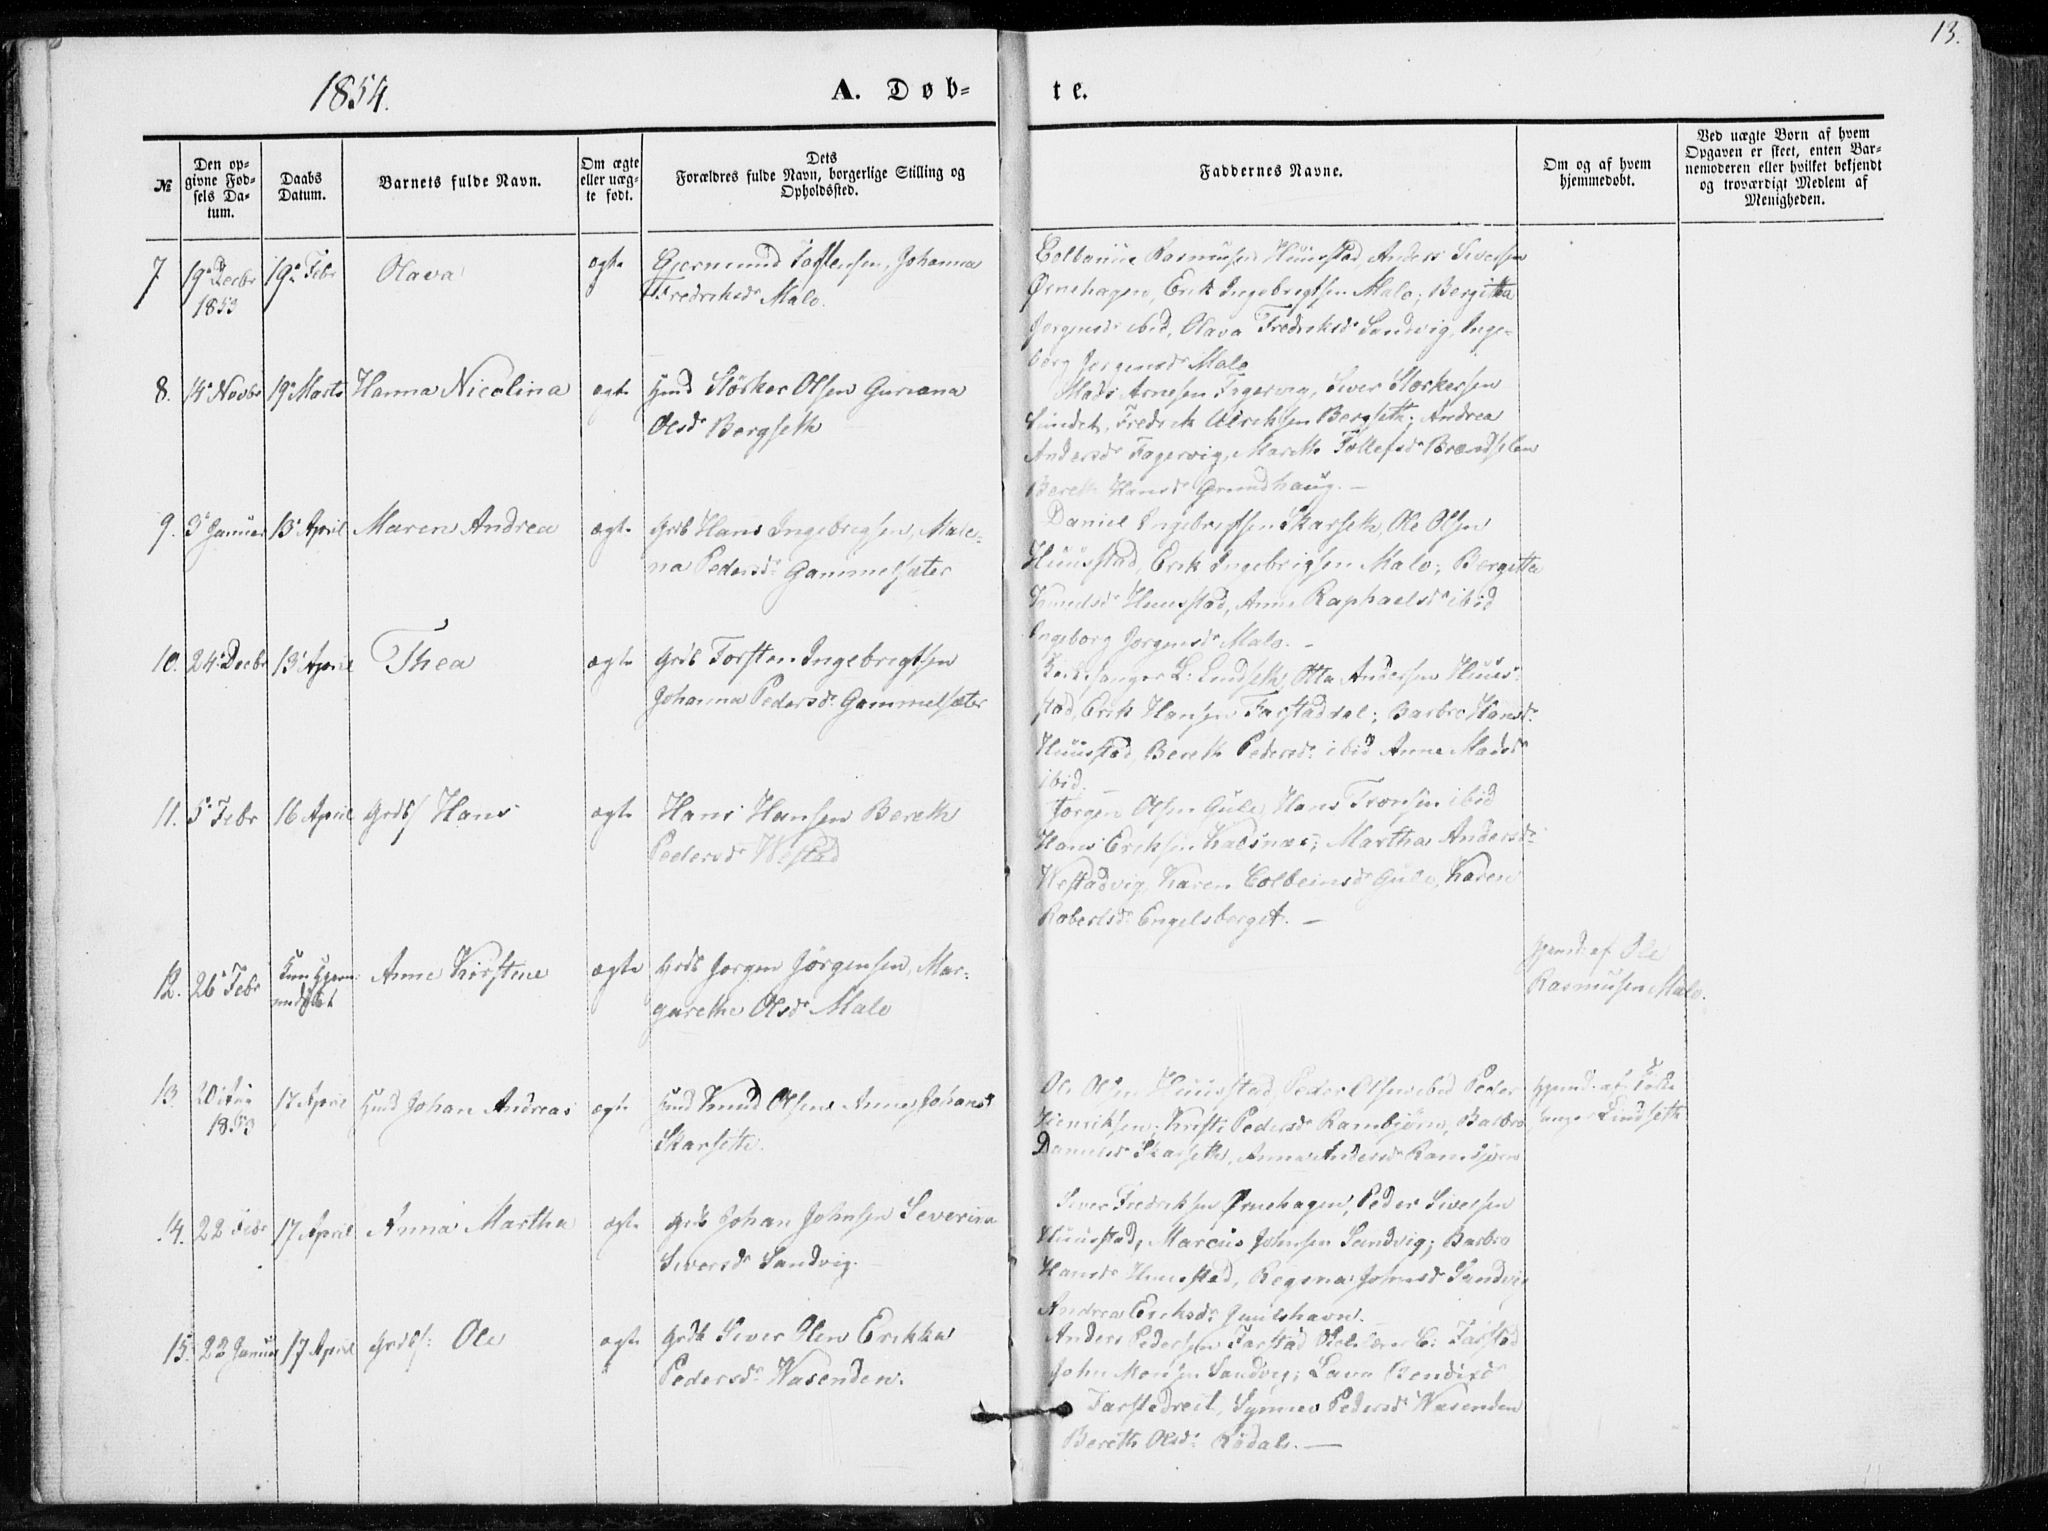 13.
1854.
A. Døb-
te.
№
Den op-
givne Fød-
sels Da-
tum.
Daabs
Datum.
Barnets fulde Navn.
Om ægte
eller uæg-
te født.
Dets
Forældres fulde Navn, borgerlige Stilling og
Opholdssted.
Faddernes Navne.
Om og af hvem
hjemmedøbt.
Ved uægte Børn af hvem
Opgaven er skeet, enten Bar-
nemoderen eller hvilket bekjendt
og troværdigt Medlem af
Menigheden.
7 19de Decbr 1853 19de Febr Olava ægte
Gjermund Johanna
Fredriksdr Malo.
Rasmusen Huustad, Anders Siversen
Ørnehagen, Erik Ingebrigtsen Malo; Bergitta
Jørgensdr ibid, Olava Fredriksdr Sandvig, Inge-
borg Jørgensdr Malo
8. 14de Novbr 19de Marts Hanna Nicolina ægte
Størker Olsen Guriana
Olsdr Bergseth
Mads Arnesen Fagervig, Siver Størkersen
Sundet, Fredrik Ulriksen Bergseth; Andrea
Andersdr Fagervig, Mareth
Bereth Hansdr Grundhaug. —
9. 3de Januar 13de April Maren Andrea ægte
Grdb Hans Ingebrigsen, Male-
na Pedersdr Gammelsæter
Daniel Ingebrigtsen Skarseth, Ole Olsen
Huustad, Erik Ingebrigsen Malo; Bergitta
Knudsdr Huustad, Anne Raphaelsdr ibid
Ingeborg Jørgensdr Malo. —
10. 24de Decbr 13de April Thea ægte
Grdb Torsten Ingebrigtsen
Johanna Pedersdr Gammelsæter
Kirkesanger L: Lindseth, Otto Andersen Huus-
stad, Erik Hansen Farstaddal; Barbro Hansdr
Huustad, Bereth Pedersdr ibid Anne Madsdr
ibid. —
11. 5te Febr 16 April Grdbs Hans ægte
Hans Hansen Bereth
Pedersdr Westad
Jørgen Olsen Gule, Hans Tronsen ibid
Hans Eriksen; Martha Andersdr
Westadvig, Karen Colbeinsdr Gule, Karen
Robertsdr Engelsberget. —
12. 26de Febr Kun hjem-
medøbt Anne Kirstine ægte
Grdb Jørgen Jørgensen, Mar-
garethe Olsdr Malo
Hjemd: af Ole
Rasmusen Malo.
13. 1853 17 April Johan Andreas ægte
Knud Olsen Anne Johansdr
Skarseth.
Ole Olsen Huustad, Peder Olsen ibid Peder
Henriksen; Kristi Pedersdr Rambjøru, Barbro
Danielsdr Skarseth, Anna Andersdr Rambjøru
Hjemd: af Kirke-
sanger Lindseth
14. 22 Febr 17 April Anna Martha ægte
Grdb Johan Johnsen Severina
Siversdr Sandvig.
Siver Fredriksen Ørnehagen, Peder Siversen
Huustad, Marcus Johnsen Sandvig; Barbro
Hansdr Huustad, Regina Johnsdr Sandvig
Andrea Eriksdr Juulshavn.
15. 22 Januar 17 April Grdbs: Ole ægte
Grdb Siver Olsen Erikka
Pedersdr Wasenden.
Anders Pedersen Farstad Farstad
John Monsen Sandvig; Lava Bendixdr
Farstadreit, Synnev Pedersdr Wasenden
Bereth Olsdr Rødal. —